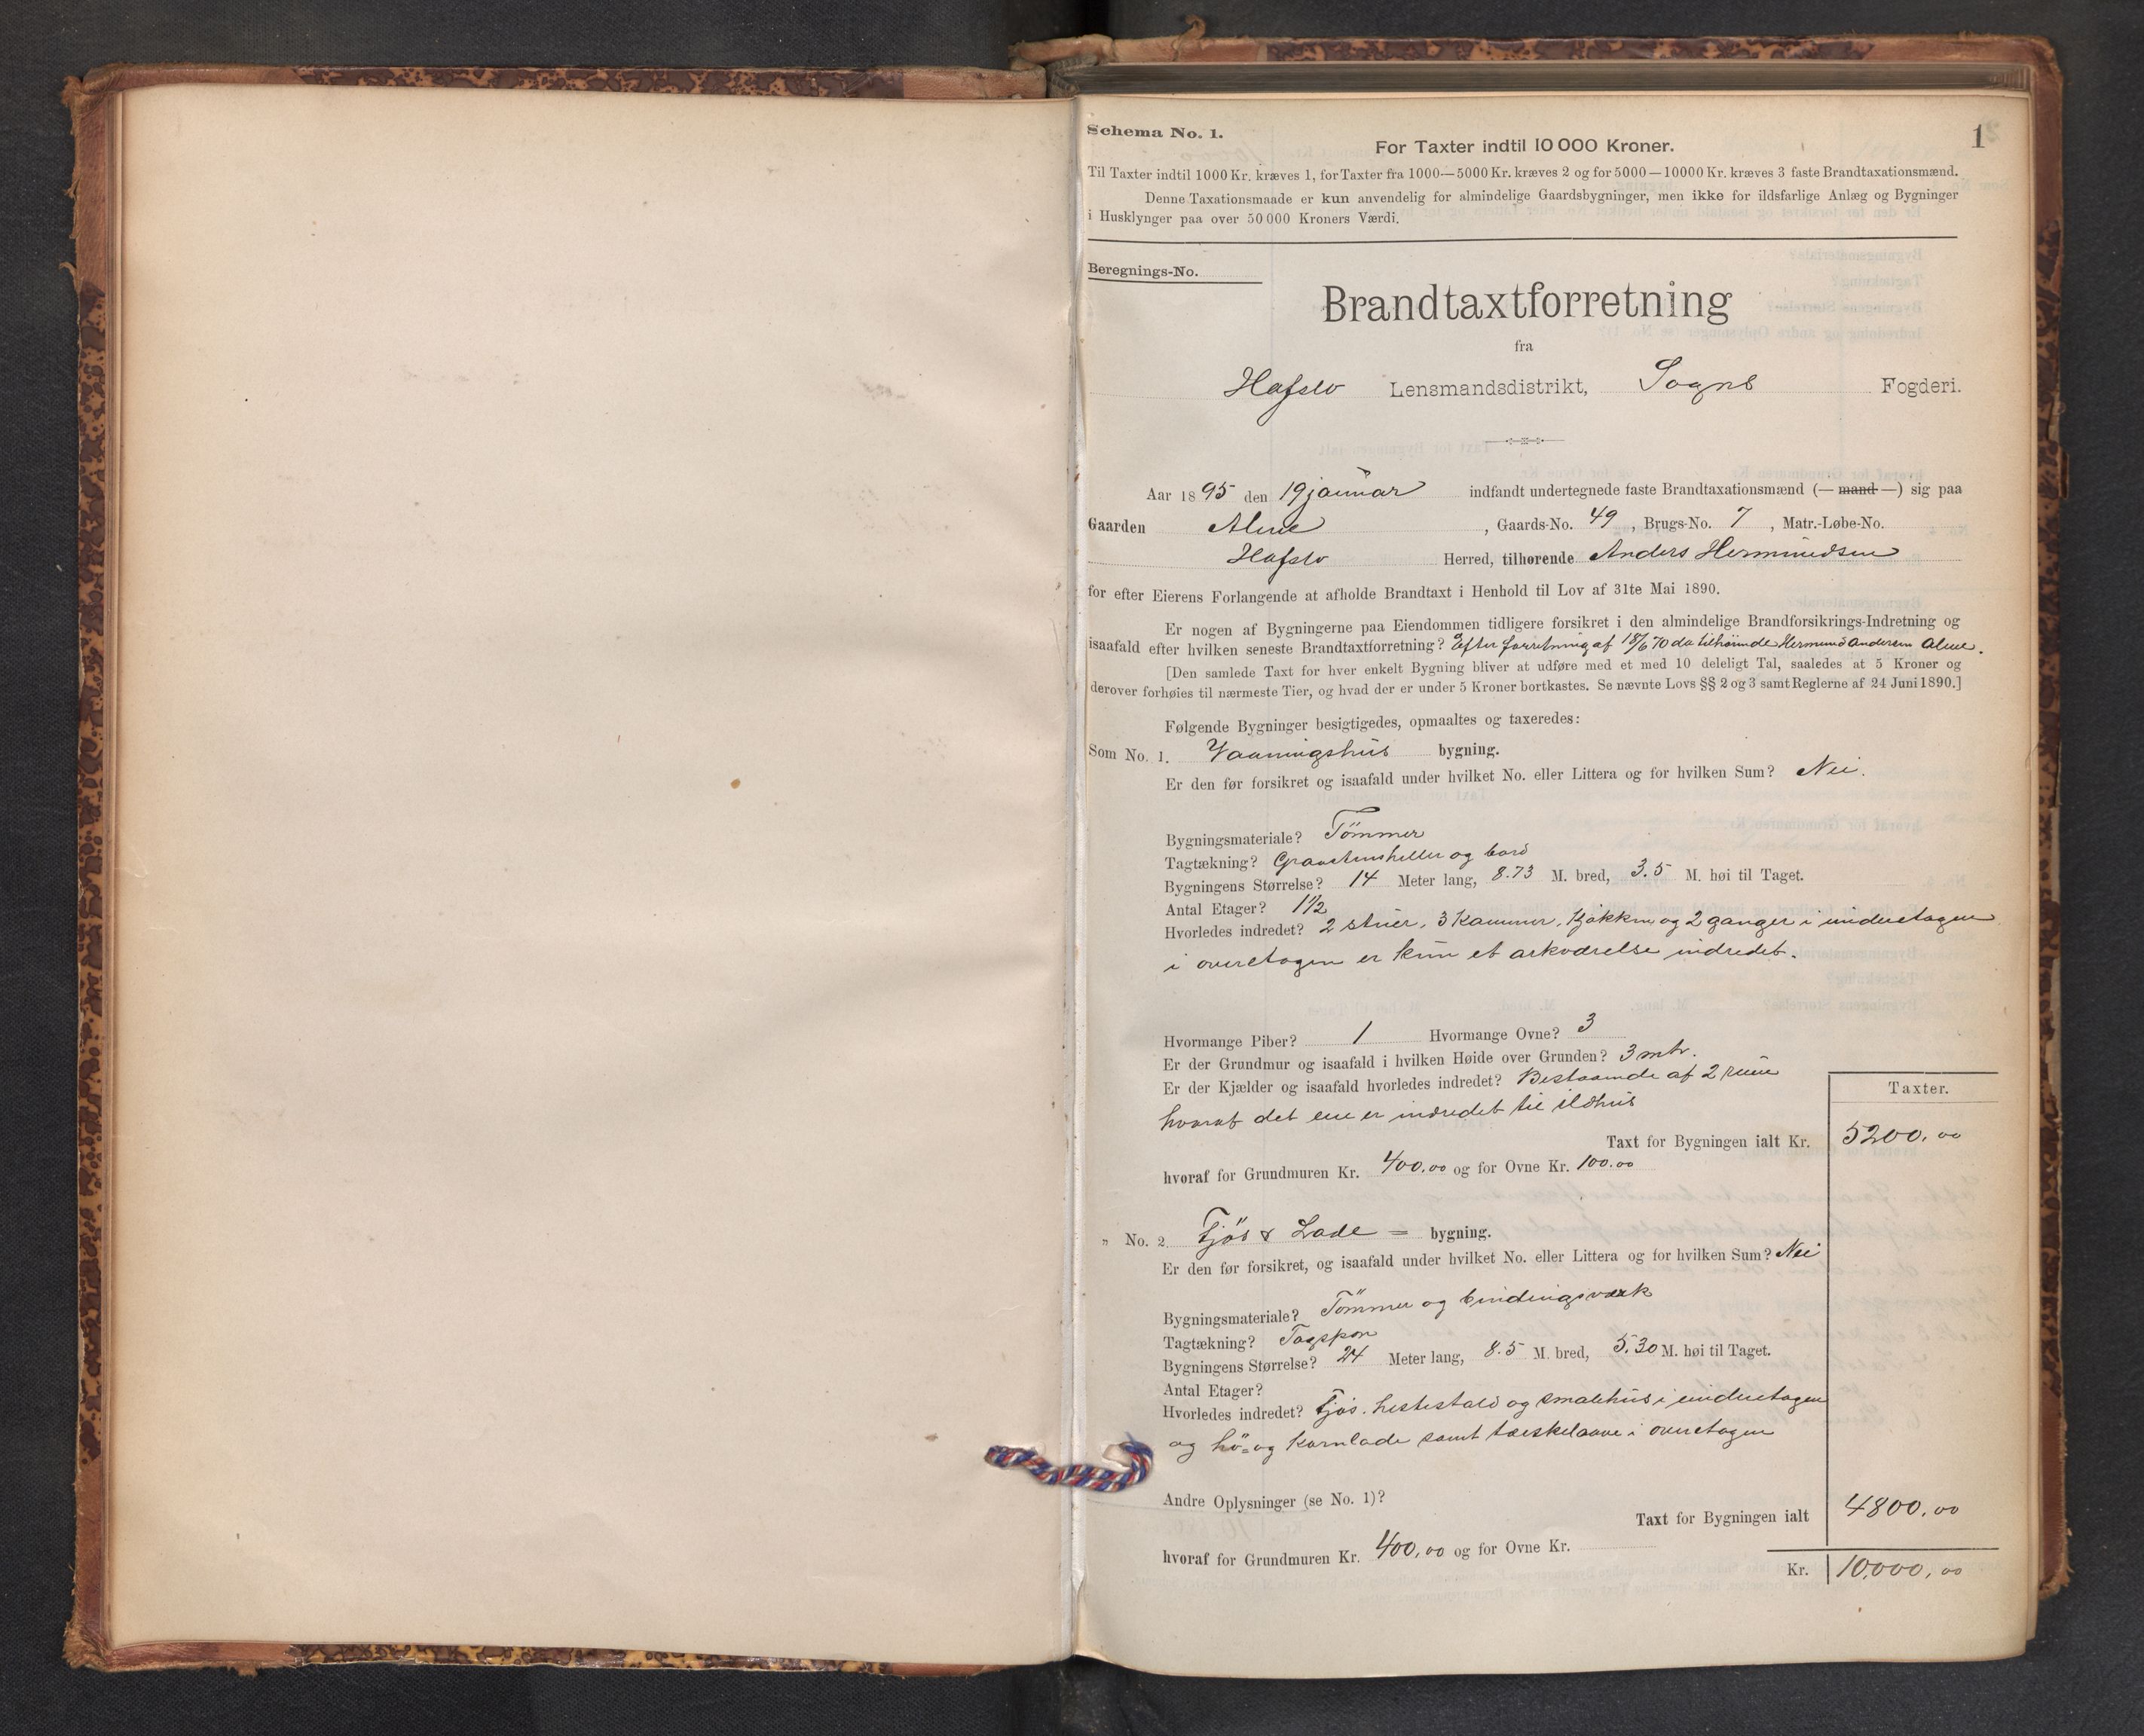 Schema No. 1.
1
For Taxter indtil 10 000 Kroner.
Til Taxter indtil 1000 Kr. kræves 1, for Taxter fra 1000—5000 Kr. kræves 2 og for 5000—10000 Kr. kræves 3 faste Brandtaxationsmænd.
Denne Taxationsmaade er kun anvendelig for almindelige Gaardsbygninger, men ikke for ildsfarlige Anlæg og Bygninger
i Husklynger paa over 50 000 Kroners Værdi.
Beregnings-No.
Brandtaxtforretning
fra
Hafslo Lensmandsdistrikt, Sogns Fogderi.
Aar 1895 den 19 januar indfandt undertegnede faste Brandtaxationsmænd (— mand —) sig paa
Gaarden Alme, Gaards-No. 49, Brugs-No. 7, Matr.-Løbe-No.
Hafslo Herred, tilhørende Anders Hermundsen
for efter Eierens Forlangende at afholde Brandtaxt i Henhold til Lov af 31te Mai 1890.
Er nogen af Bygningerne paa Eiendommen tidligere forsikret i den almindelige Brandforsikrings-Indretning og
isaafald efter hvilken seneste Brandtaxtforretning? Efter forretning af 18/6 70 da tilhørende Hermund Andersen Alme.
[Den samlede Taxt for hver enkelt Bygning bliver at udføre med et med 10 deleligt Tal, saaledes at 5 Kroner og
derover forhøies til nærmeste Tier, og hvad der er under 5 Kroner bortkastes. Se nævnte Lovs §§ 2 og 3 samt Reglerne af 24 Juni 1890.]
Følgende Bygninger besigtigedes, opmaaltes og taxeredes:
Som No. 1. Vaaningshus bygning.
Er den før forsikret og isaafald under hvilket No. eller Littera og for hvilken Sum? Nei.
Bygningsmateriale? Tömmer
Tagtækning? Graastensheller og bord
Bygningens Størrelse? 14 Meter lang, 8.73 M. bred, 3.5 M. høi til Taget.
Antal Etager? 1 1/2
Hvorledes indredet? 2 stuer, 3 kammer, kjøkken og 2 ganger i underetagen
i overetagen er kun et arkværelse indredet.
Hvormange Piber? 1 Hvormange Ovne? 3
Er der Grundmur og isaafald i hvilken Høide over Grunden? 3 mtr.
Er der Kjælder og isaafald hvorledes indredet? Bestaaende af 2 rum
hvoraf det ene er indredet til ildhus
Taxter.
Taxt for Bygningen ialt Kr. 5200,00
hvoraf for Grundmuren Kr. 400,00 og for Ovne Kr. 100.00
„ No. 2. Fjös & Lade = bygning.
Er den før forsikret, og isaafald under hvilket No. eller Littera og for hvilken Sum? Nei
Bygningsmateriale? Tömmer og bindingsværk
Tagtækning? Tagspon
Bygningens Størrelse? 24 Meter lang, 8.5 M. bred, 5.30 M. høi til Taget.
Antal Etager?
Hvorledes indredet? Fjøs, hestestald og smalehus i underetagen
og hö= og kornlade samt tærskelaave i overetagen
Andre Oplysninger (se No. 1)?
Taxt for Bygningen ialt 4800,00
hvoraf for Grundmuren Kr. 400,00 og for Ovne Kr.
Kr. 10,000,00